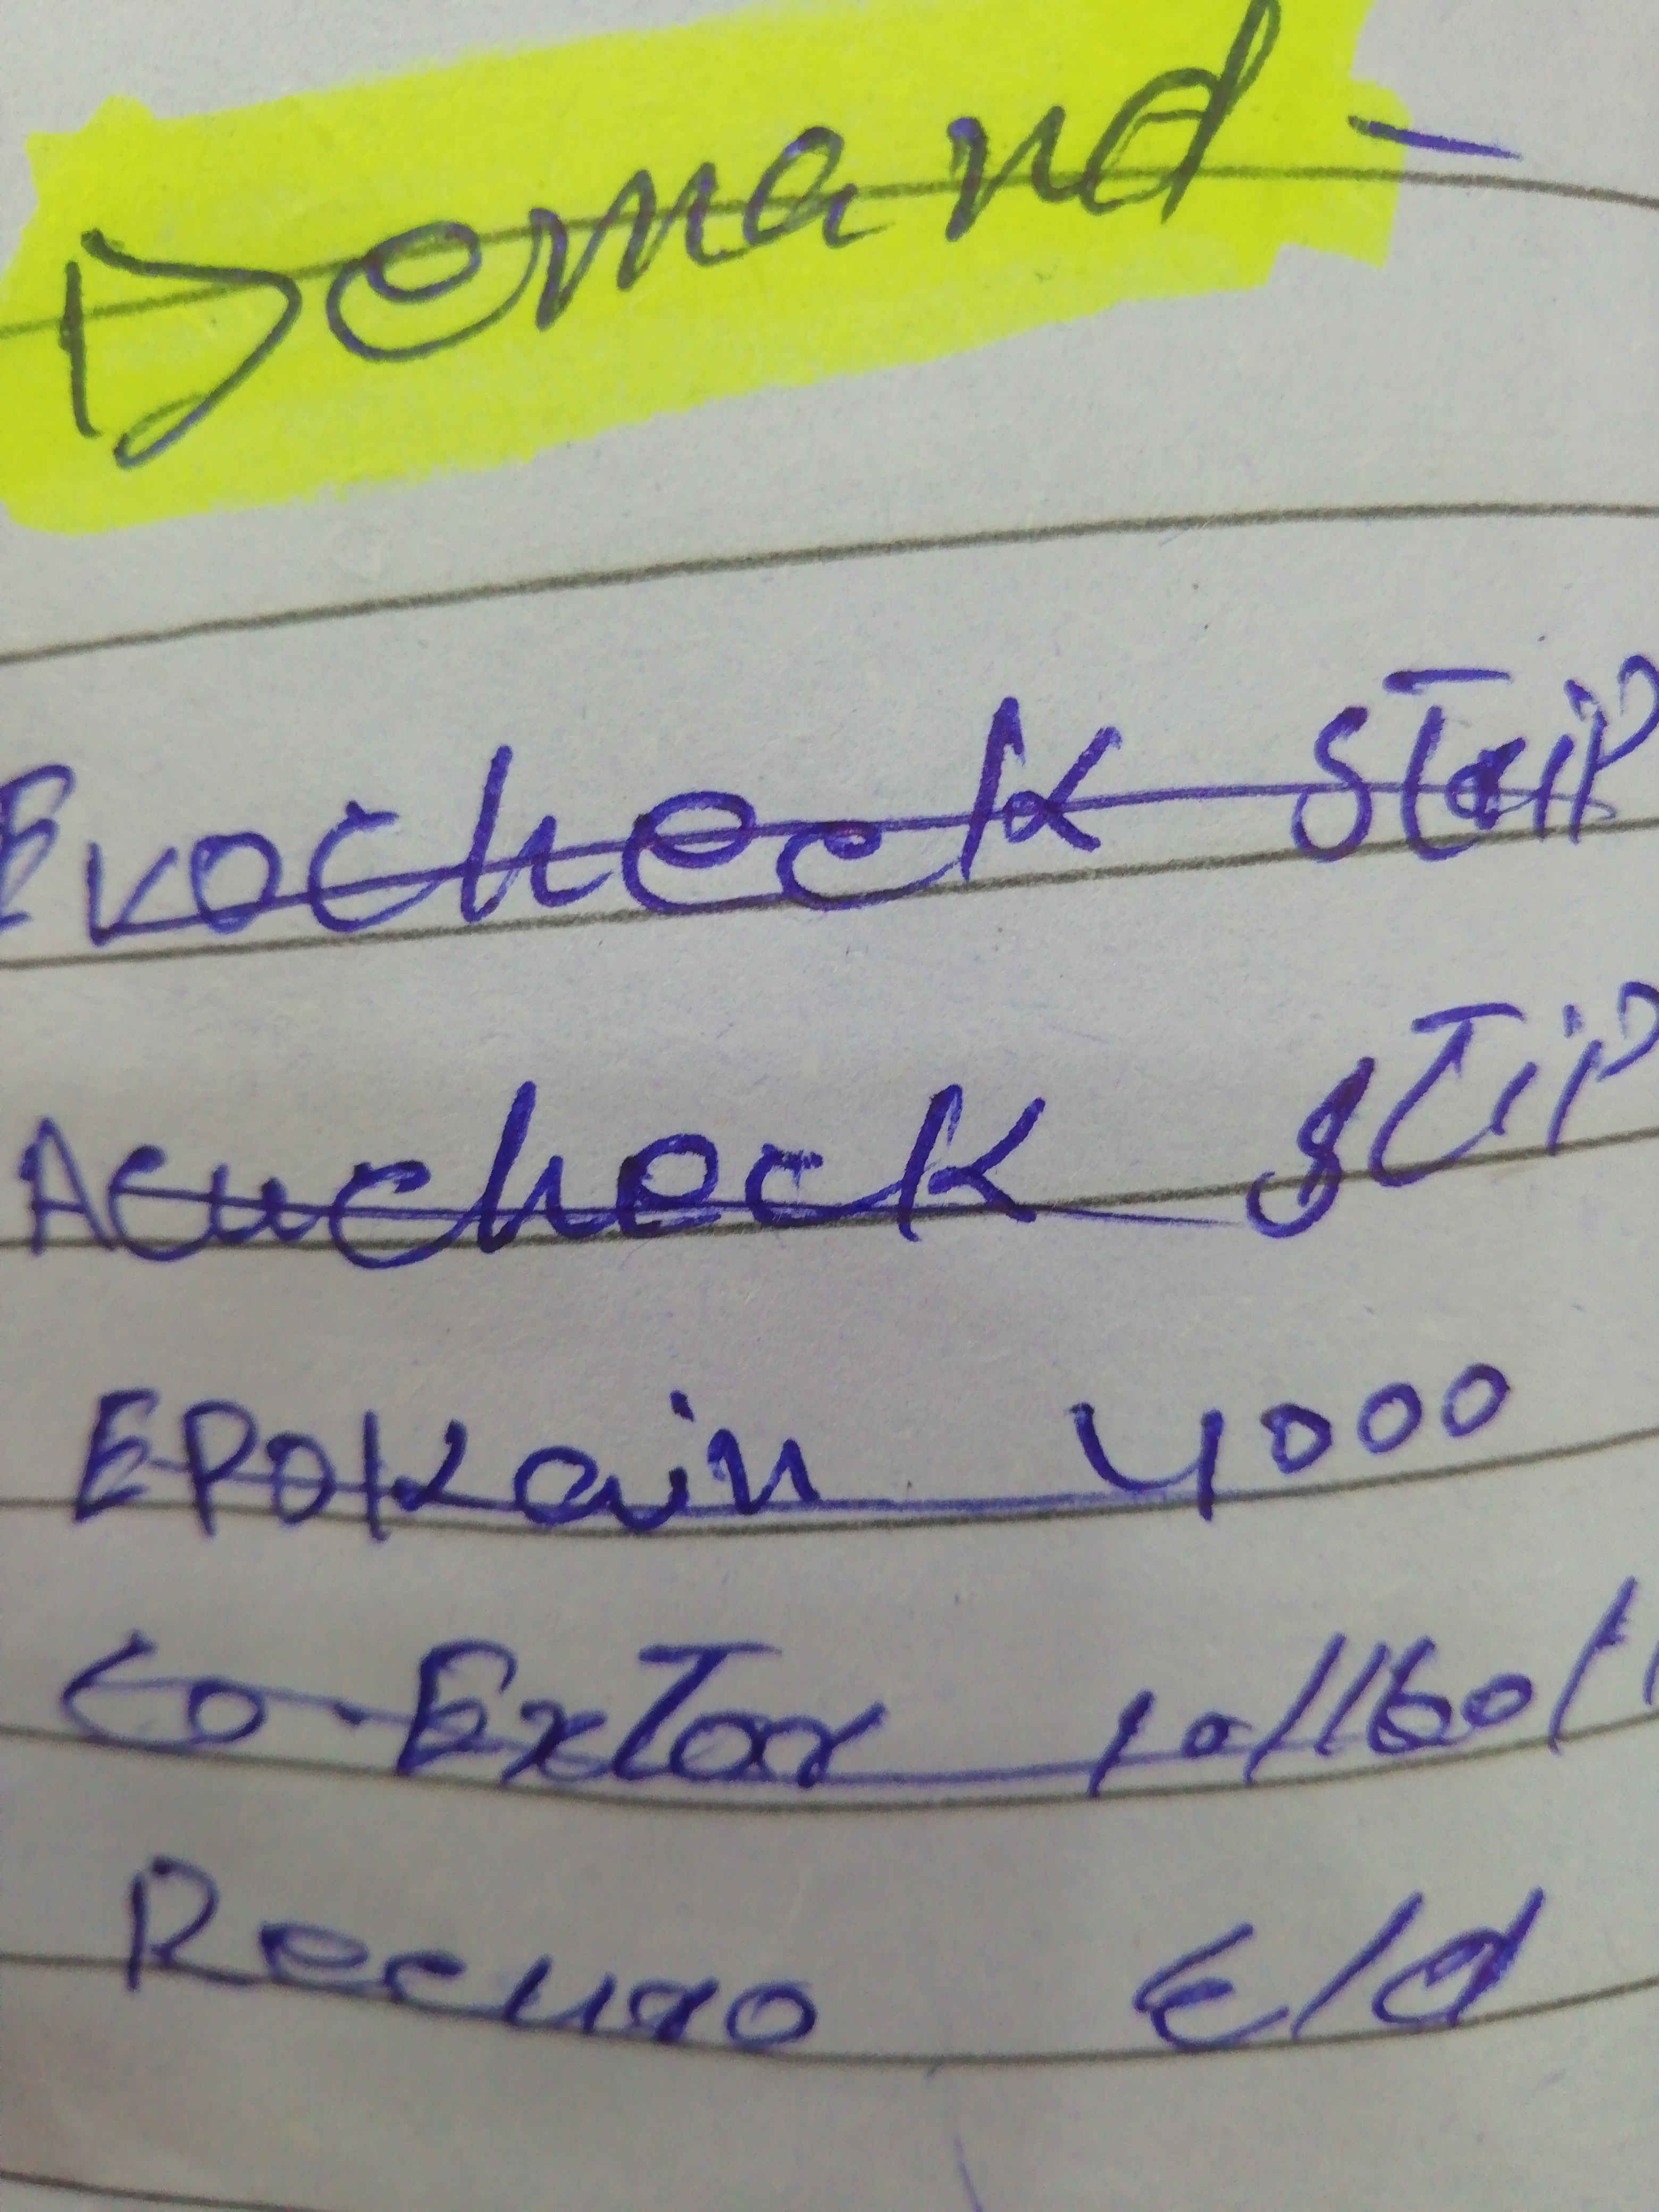 Demand -
Evocheck STrip
Acucheck STip
EPOKain 4000
Co-ExTor 10/160/
Recuro E/d